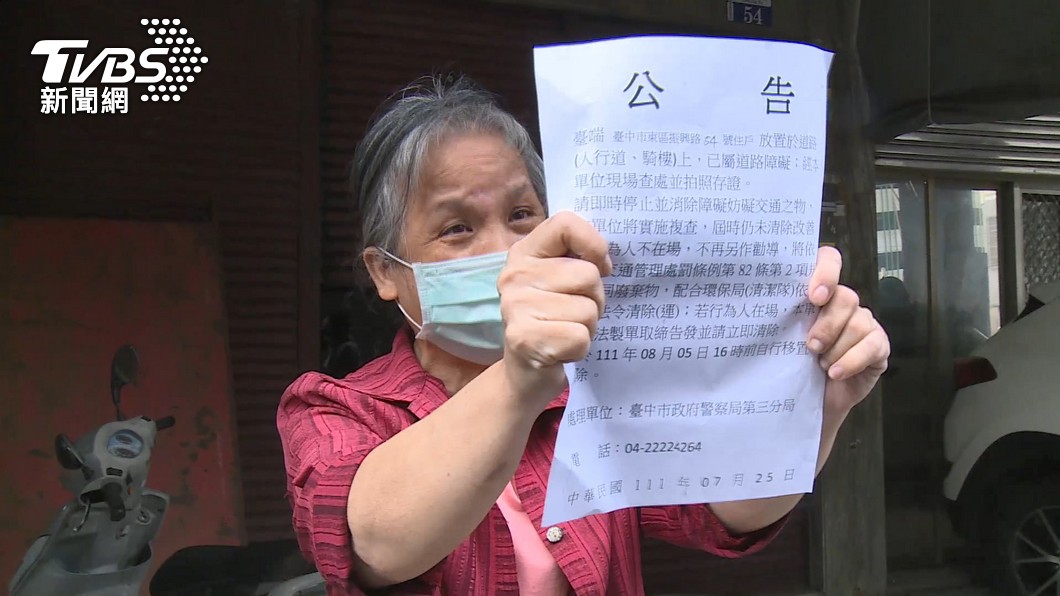 TVBS
新聞網
54
公告
臺端 臺中市東區振興路 54 號住戶 放置於道路
(人行道、騎樓)上，已屬道路障礙；經本
單位現場查處並拍照存證。
請即時停止並消除障礙妨礙交通之物，
單位將實施複查，屆時仍未清除改善
為人不在場，不再另作勸導，將依
交通管理處罰條例第 82 條第 2 項
同廢棄物，配合環保局(清潔隊)依
法令清除(運)；若行為人在場，本單
法製單取締告發並請立即清除。
111 年 08 月 05 日 16 時前自行移置
除。
處理單位：臺中市政府警察局第三分局
電 話：04-22224264
中華民國 111 年 07 月 25 日